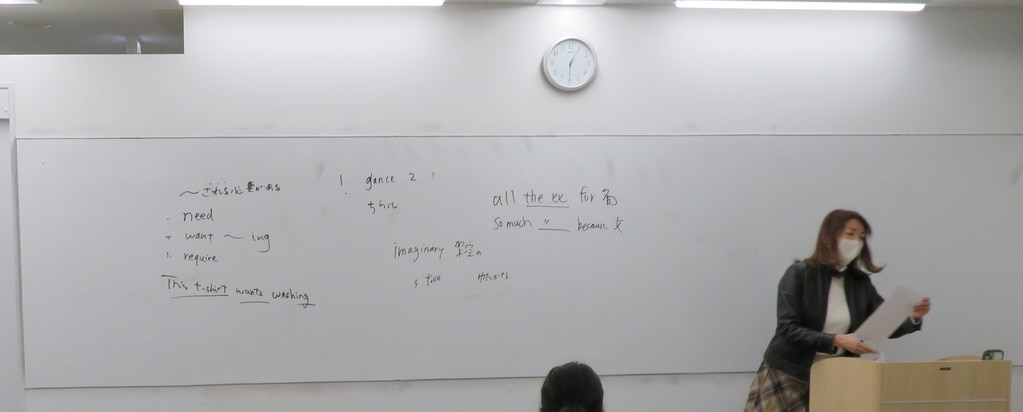 ～される必要がある
need
want ～ ing
require
This t-shirt wants washing
1. glance 2.
ちらっと
imaginary 架空の
tive
all the 比 for 名
so much 〃 because 文